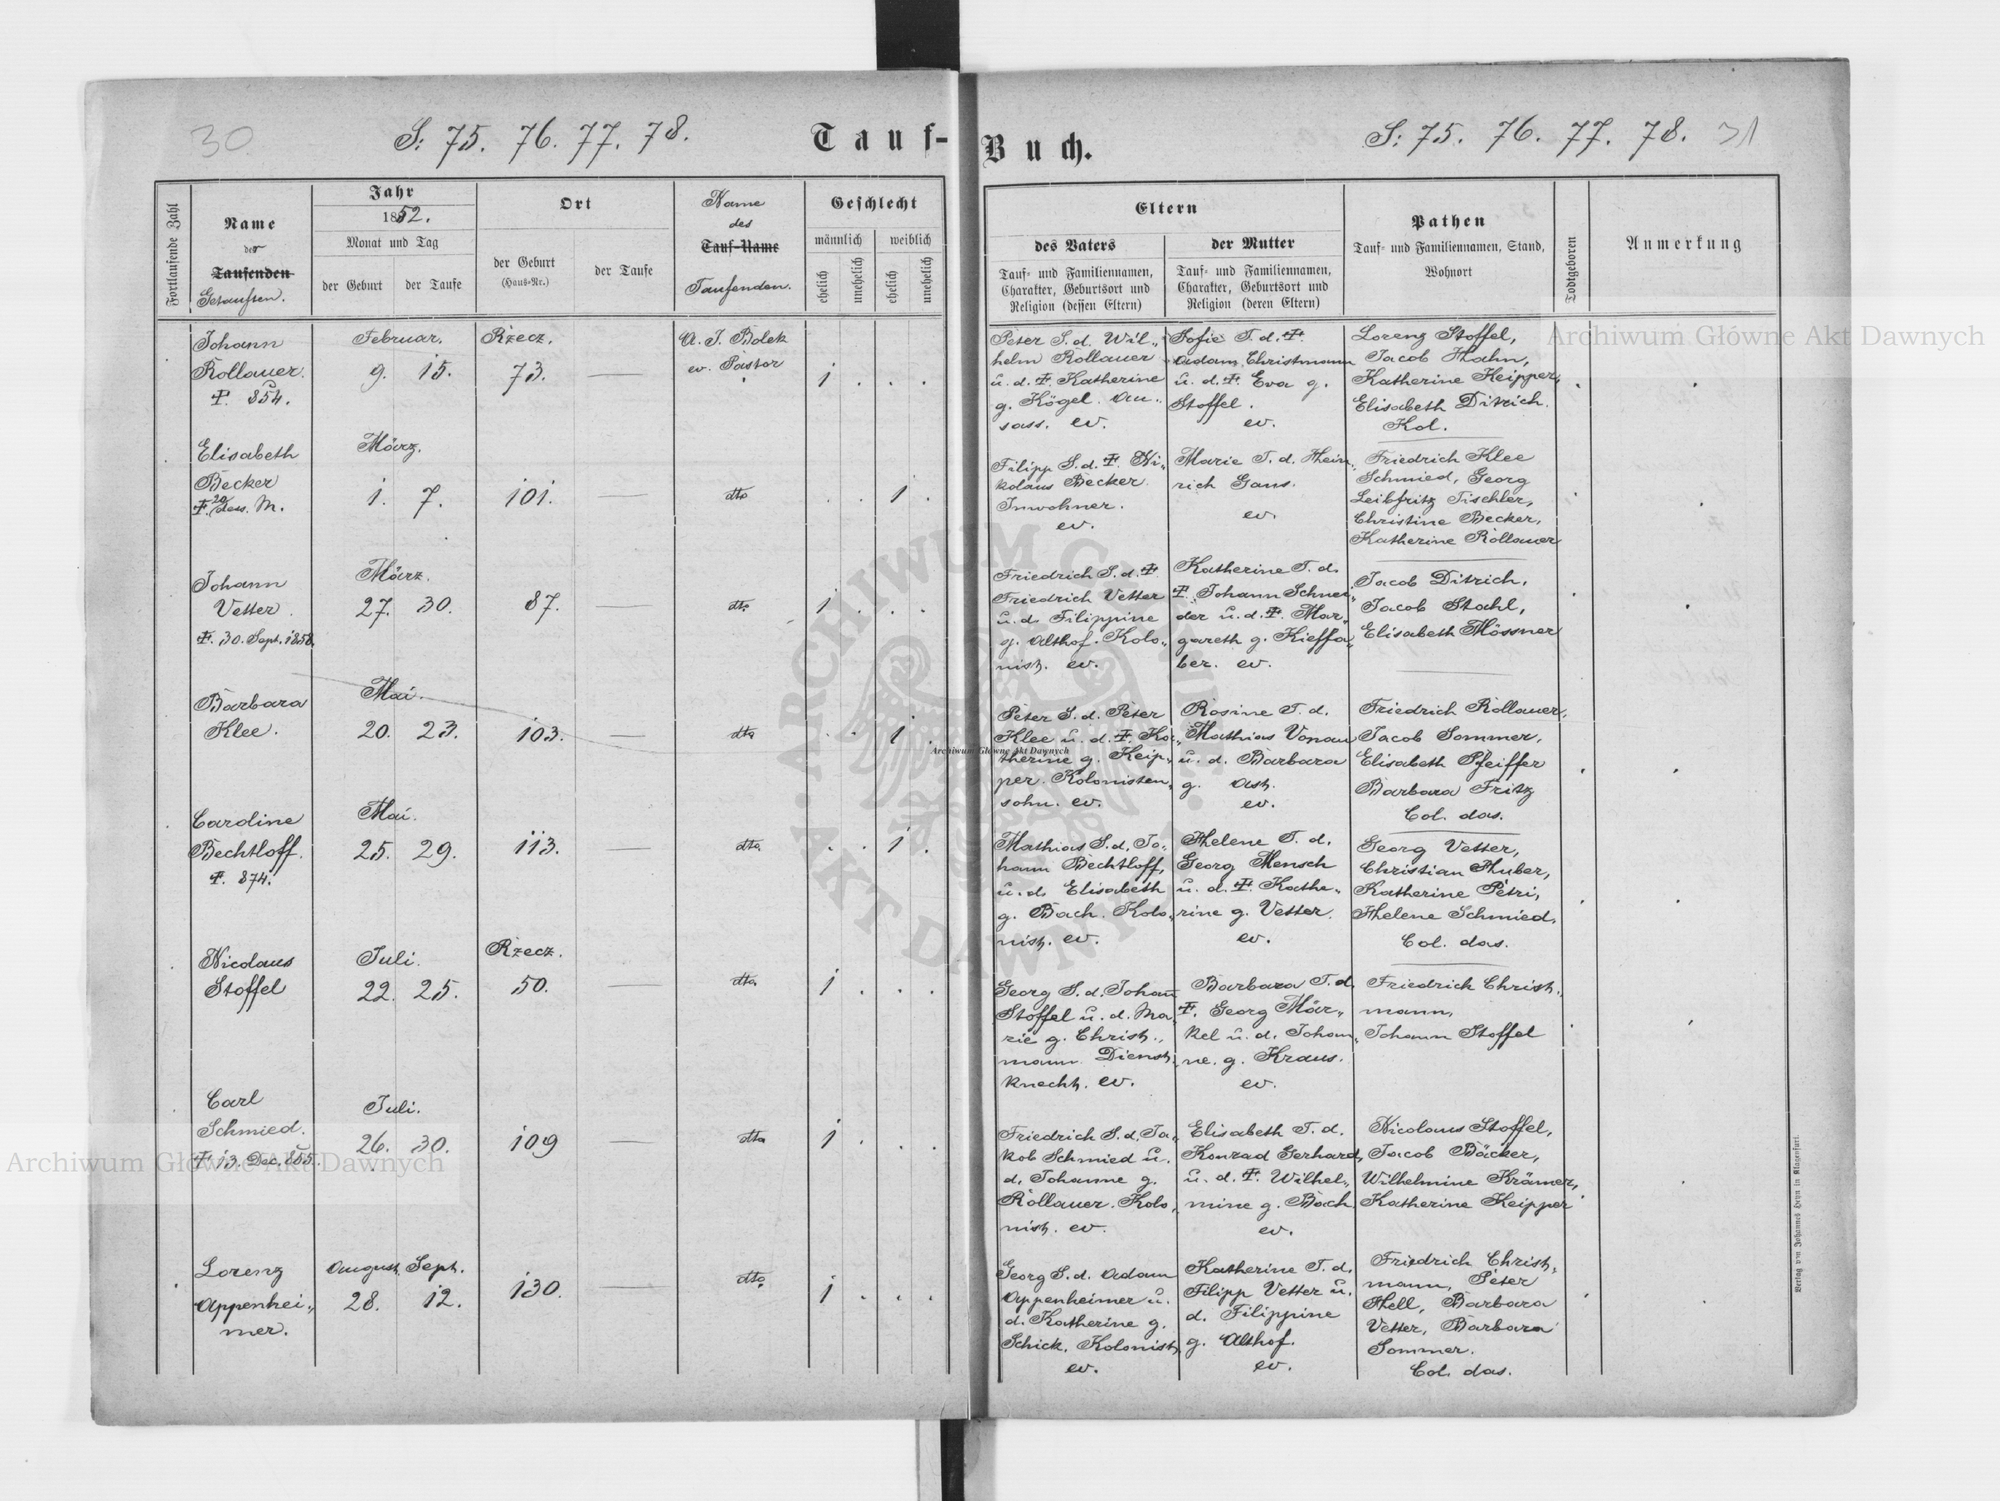 30
S: 75. 76. 77. 78.
Tauf-
Fortlaufende Zahl
Name
der
Taufenden
Getauften.
Jahr
1852.
Monat und Tag
der Geburt
der Taufe
Ort
der Geburt
(Haus-Nr.)
der Taufe
Name
des
Tauf-Name
Taufenden.
Geschlecht
männlich
weiblich
ehelich
unehelich
ehelich
unehelich
Johann
Rollauer.
Ŧ. 854.
Februar.
9. 15.
Rzecz.
73. —
A. J. Bolek
ev. Pastor
1 . . .
Elisabeth
Becker
März.
1. 7.
101. —
dto
. . 1 .
Johann
Vetter.
Ŧ. 30. Sept. 1858.
März.
27. 30.
87. —
dto
1 . . .
Barbara
Klee.
Mai.
20. 23.
103. —
dto
. . 1 .
Caroline
Bechtloff.
Ŧ. 874.
Mai.
25. 29.
113. —
dto
. . 1 .
Nicolaus
Stoffel
Juli.
22. 25.
Rzecz.
50. —
dto
1 . . .
Carl
Schmied.
Ŧ. 13. Dec. 855.
Juli.
26. 30.
109 —
dto
1 . . .
Lorenz
Appenhei„
mer.
August. Sept.
28. 12.
130. —
dto
1 . . .
Buch.
S: 75. 76. 77. 78.
31
Eltern
des Vaters
Tauf- und Familiennamen,
Charakter, Geburtsort und
Religion (dessen Eltern)
der Mutter
Tauf- und Familiennamen,
Charakter, Geburtsort und
Religion (deren Eltern)
Pathen
Tauf- und Familiennamen, Stand,
Wohnort
Todtgeboren
Anmerkung
Peter S. d. Wil„
helm Rollauer
u. d. Ŧ. Katherine
g. Kögel. An„
sass. ev.
Sofie T. d. Ŧ.
Adam Christmann
u. d. Ŧ. Eva g.
Stoffel.
ev.
Lorenz Stoffel,
Jacob Hahn,
Katherine Keipper,
Elisabeth Ditrich.
Kol.
Filipp S. d. Ŧ. Ni„
kolaus Becker
Inwohner.
ev.
Marie T. d. Hein„
rich Gans.
ev.
Friedrich Klee
Schmied, Georg
Leibfritz Tischler,
Christine Becker,
Katherine Rollauer
Friedrich S. d. Ŧ.
Friedrich Vetter
u. d. Filippine
g. Althof. Kolo„
nist. ev.
Katherine T. d.
Ŧ. Johann Schnei„
der u. d. Ŧ. Mar„
gareth g. Kieffa„
ber. ev.
Jacob Ditrich,
Jacob Stahl,
Elisabeth Mössner
Peter S. d. Peter
Klee u. d. Ŧ. Ka„
therine g. Keip„
per. Kolonisten„
sohn. ev.
Rosine T. d.
Mathias Vonau
u. d. Barbara
g. Ast.
ev.
Friedrich Rollauer,
Jacob Sommer,
Elisabeth Pfeiffer
Barbara Fritz
Col. das.
Mathias S. d. Jo„
hann Bechtloff,
u. d. Elisabeth
g. Bach. Kolo„
nist. ev.
Helene T. d.
Georg Mensch
u. d. Ŧ. Kathe„
rine g. Vetter.
ev.
Georg Vetter,
Christian Huber,
Katherine Petri,
Helene Schmied,
Col. das.
Georg S. d. Johan̄
Stoffel u. d. Ma„
rie g. Christ„
mann. Dienst„
knecht. ev.
Barbara T. d.
Ŧ. Georg Mär„
kel u. d. Johan„
ne. g. Kraus.
ev.
Friedrich Christ„
mann,
Johann Stoffel
Friedrich S. d. Ja„
kob Schmied u.
d. Johanne g.
Rollauer. Kolo„
nist. ev.
Elisabeth T. d.
Konrad Gerhard,
u. d. Ŧ. Wilhel„
mine g. Bach
ev.
Nicolaus Stoffel,
Jacob Bäcker,
Wilhelmine Krämer,
Katherine Keipper
Georg S. d. Adam
Appenheimer u.
d. Katherine g.
Schick. Kolonist,
ev.
Katherine T. d.
Filipp Vetter u.
d. Filippine
g. Althof.
ev.
Friedrich Christ„
mann, Peter
Hell, Barbara
Vetter, Barbara
Sommer.
Col. das.
Verlag von Johannes Heyn in Klagenfurt.
Archiwum Główne Akt Dawnych
Archiwum Główne Akt Dawnych
Archiwum Główne Akt Dawnych
ARCHIWUM GŁÓWNE
AKT DAWNYCH